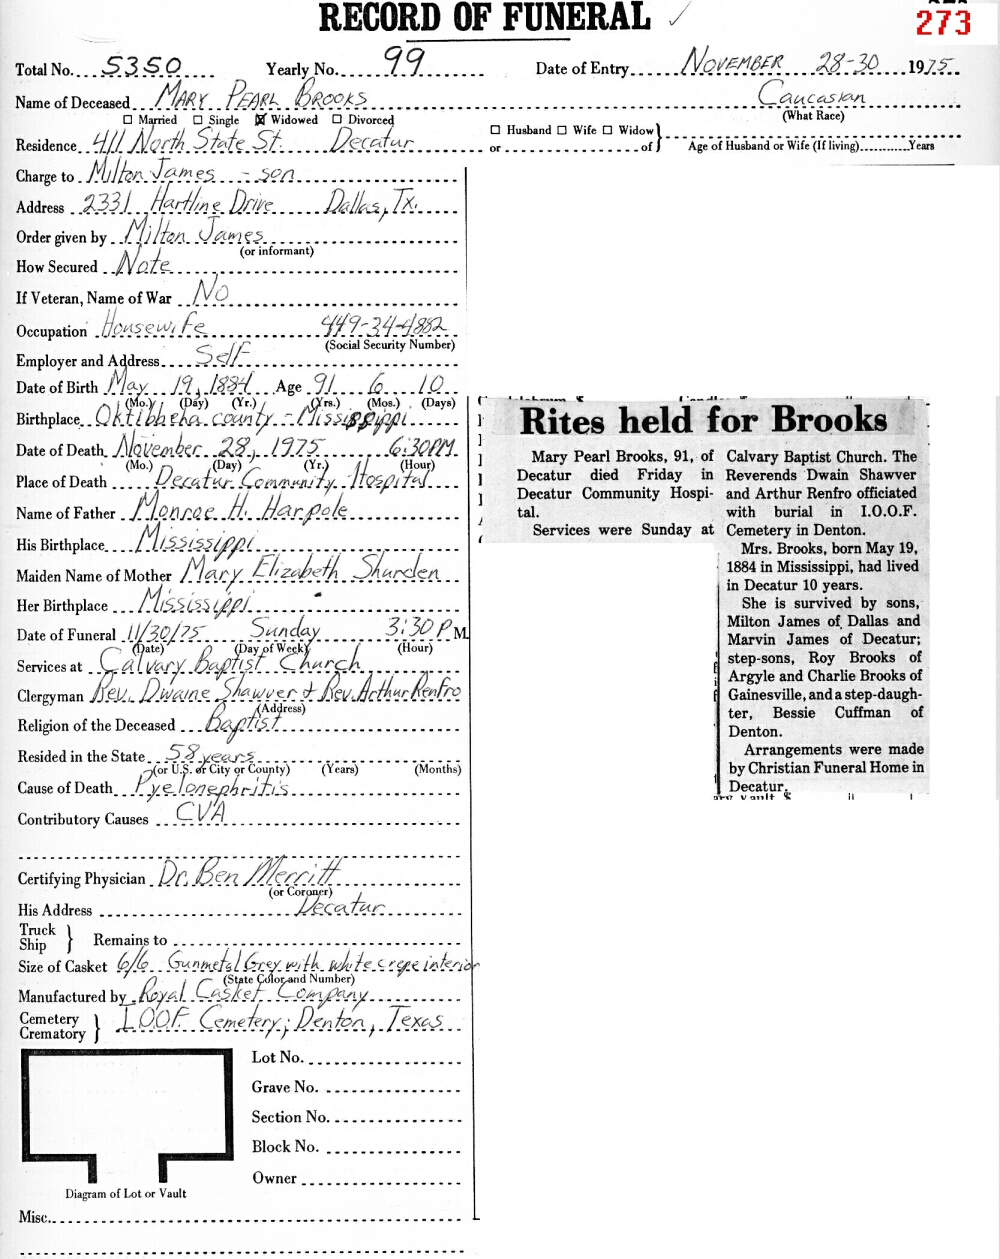 RECORD OF FUNERAL ✓
273
Total No. 5350 Yearly No. 99 Date of Entry NOVEMBER 28-30 1975
Name of Deceased MARY PEARL BROOKS Caucasian
(What Race)
☐ Married ☐ Single ☒ Widowed ☐ Divorced
☐ Husband ☐ Wife ☐ Widow }
Residence 411 North State St. Decatur or of } Age of Husband or Wife (If living) Years
Charge to Milton James - son
Address 2331 Hartline Drive Dallas, Tx.
Order given by Milton James
(or informant)
How Secured Note
If Veteran, Name of War No
Occupation Housewife 449-34-4882
(Social Security Number)
Employer and Address Self
Date of Birth May 19, 1884 Age 91 6 10
(Mo.) (Day) (Yr.) (Yrs.) (Mos.) (Days)
Birthplace Oktibbeha county - Mississippi
Date of Death November 28, 1975 6:30PM
(Mo.) (Day) (Yr.) (Hour)
Place of Death Decatur Community Hospital
Name of Father Monroe H. Harpole
His Birthplace Mississippi
Maiden Name of Mother Mary Elizabeth Shurden
Her Birthplace Mississippi
Date of Funeral 11/30/75 Sunday 3:30 P M.
(Date) (Day of Week) (Hour)
Services at Calvary Baptist Church
Clergyman Rev. Dwaine Shawver & Rev. Arthur Renfro
(Address)
Religion of the Deceased Baptist
Resided in the State 58 years
(or U.S. or City or County) (Years) (Months)
Cause of Death Pyelonephritis
Contributory Causes CVA
Certifying Physician Dr. Ben Merritt
(or Coroner)
His Address Decatur
Truck
Ship } Remains to
Size of Casket 6/6 Gunmetal Grey with white crepe interior
(State Color and Number)
Manufactured by Royal Casket Company
Cemetery
Crematory } I.O.O.F. Cemetery; Denton, Texas
Lot No.
Grave No.
Section No.
Block No.
Owner
Diagram of Lot or Vault
Misc.
Rites held for Brooks
Mary Pearl Brooks, 91, of
Decatur died Friday in
Decatur Community Hospi-
tal.
Services were Sunday at
Calvary Baptist Church. The
Reverends Dwain Shawver
and Arthur Renfro officiated
with burial in I.O.O.F.
Cemetery in Denton.
Mrs. Brooks, born May 19,
1884 in Mississippi, had lived
in Decatur 10 years.
She is survived by sons,
Milton James of Dallas and
Marvin James of Decatur;
step-sons, Roy Brooks of
Argyle and Charlie Brooks of
Gainesville, and a step-daugh-
ter, Bessie Cuffman of
Denton.
Arrangements were made
by Christian Funeral Home in
Decatur.